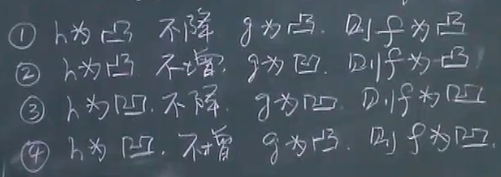 ① h为凸 不降 g为凸. 则f为凸
② h为凸 不增. g为凹. 则f为凸
③ h为凹. 不降. g为凹. 则f为凹
④ h为凹. 不增 g为凸. 则f为凹.